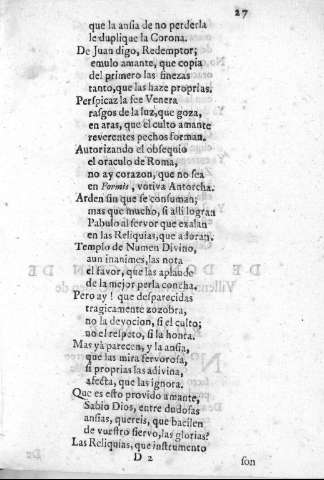 27
que la ansia de no perderla
le duplique la Corona.
De Juan digo, Redemptor;
emulo amante, que copia
del primero las finezas
tanto, que las haze proprias.
Perspicaz la fee Venera
rasgos de la luz, que goza,
en aras, que el culto amante
reverentes pechos forman.
Autorizando el obsequio
el oraculo de Roma,
no ay corazon, que no sea
en Formis, votiva Antorcha.
Arden sin que se consuman;
mas que mucho, si alli logran
Pabulo al fervor que exalan
en las Reliquias, que adoran.
Templo de Numen Divino,
aun inanimes, las nota
el favor, que las aplaude
de la mejor perla concha.
Pero ay! que desparecidas
tragicamente zozobra,
no la devocion, si el culto;
no el respeto, si la honra.
Mas yà parecen, y la ansia,
que las mira fervorosa,
si proprias las adivina,
afecta, que las ignora.
Que es esto provido amante,
Sabio Dios, entre dudosas
ansias, quereis, que bacilen
de vuestro siervo, las glorias?
Las Reliquias, que instrumento
D 2
son